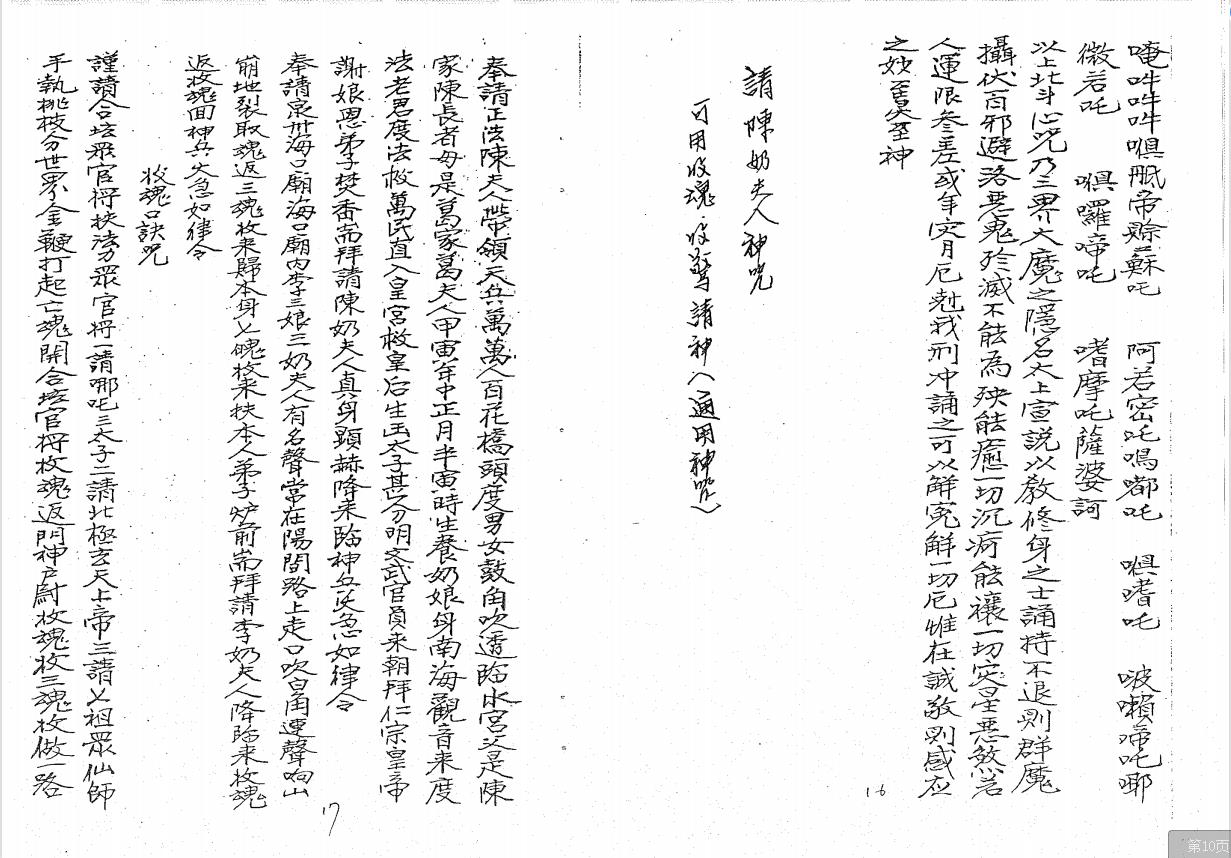 唵吽吽吽嗔胝帝赊蘇吒　阿若密吒嗚嘟吒　嗔嗜吒　啵囉啼吒耶
微若吒　嗔囉啼吒　嗜摩吒薩婆訶
以上北斗心咒乃三界大魔之隱名太上宣說以教修身之士誦持不退則群魔
攝伏百邪避洛惡鬼殄滅不能為殃能癒一切沉疴能禳一切灾星惡煞若
人運限叁差或年灾月厄尅我刑冲誦之可以解冤解一切厄惟在誠敬則感应
之妙 至神
16
請陳奶夫人神咒
可用收魂、收驚請神（通用神咒）
奉請正法陳夫人帶領天兵萬萬人百花橋頭度男女鼓角吹透臨水宮父是陳
家陳長者母是葛家葛夫人甲寅年中正月半寅時生養奶娘身南海觀音来度
法老君度法救萬民直入皇宮救皇后生玉太子甚分明文武官員来朝拜仁宗皇帝
謝娘恩弟子焚香耑拜請陳奶夫人真身顕赫降来臨神兵火急如律令
奉請泉州海口廟海口廟内李三娘三奶夫人有名聲常在陽間路上走口吹白角連聲响山
崩地裂取魂返三魂收来歸本身七魄收来扶本人弟子炉前耑拜請李奶夫人降臨来收魂
返收魂面神兵火急如律令
收魂口訣咒
謹請合坛眾官将扶法力眾官将一請哪吒三太子二請北極玄天上帝三請七祖眾仙師
手執桃枝分世界金鞭打起亡魂開合坛官将收魂返門神户尉收魂收三魂收做一路
17
第10页